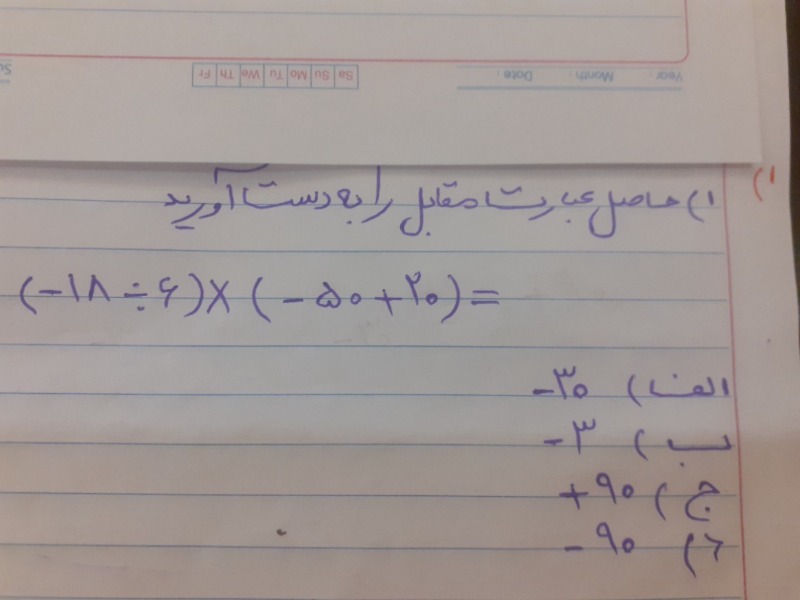 Year: Month: Date:
Sa Su Mo Tu We Th Fr
۱)
۱) حاصل عبارت مقابل را به دست آورید
(-۱۸ ÷ ۶) × (-۵۰ + ۲۰) =
الف) -۳۰
ب) -۳
ج) +۹۰
د) -۹۰